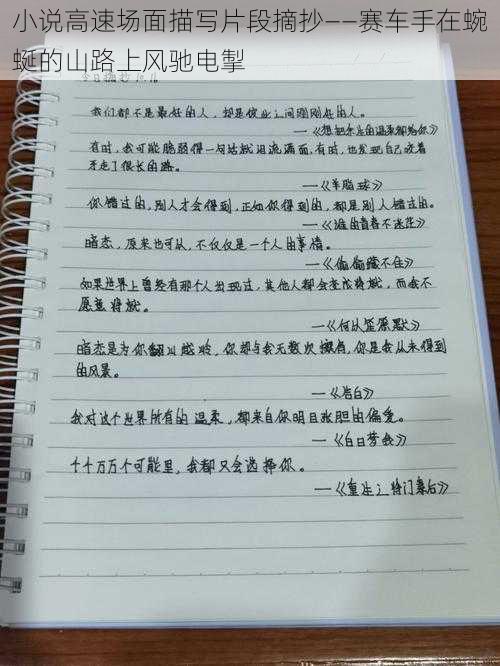 小说高速场面描写片段摘抄——赛车手在蜿
蜒的山路上风驰电掣
今日摘抄
我们都不是最好的人,却是彼此之间刚刚好的人。
——《想把余生的温柔都给你》
有时,我可能脆弱得一句话就泪流满面,有时,也发现自己咬着
牙走了很长的路。
——《羊脂球》
你错过的,别人才会得到,正如你得到的,都是别人错过的。
——《谁的青春不迷茫》
暗恋,原来也可以,不仅仅是一个人的事情。
——《偷偷藏不住》
如果世界上曾经有那个人出现过,其他人都会变成将就,而我不
愿意将就。
——《何以笙箫默》
暗恋是为你翻山越岭,你却与我无数次擦肩,你是我从未得到
的风景。
——《告白》
我对这个世界所有的温柔,都来自你明目张胆的偏爱。
——《白日梦我》
千千万万个可能里,我都只会选择你。
——《重生之将门毒后》